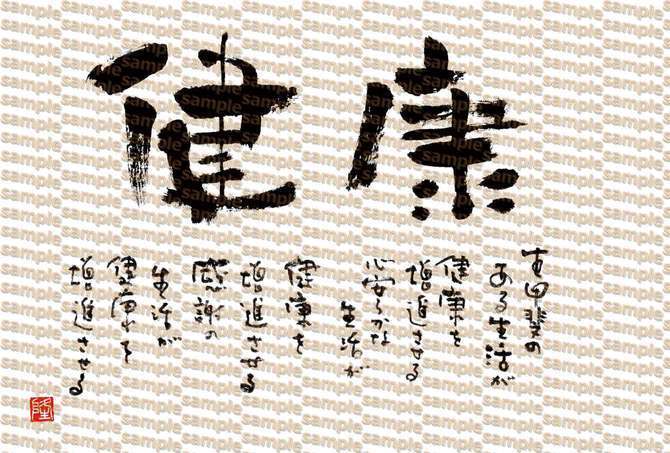 健康
生甲斐の
ある生活が
健康を
増進させる
心安らかな
生活が
健康を
増進させる
感謝の
生活が
健康を
増進させる
sample